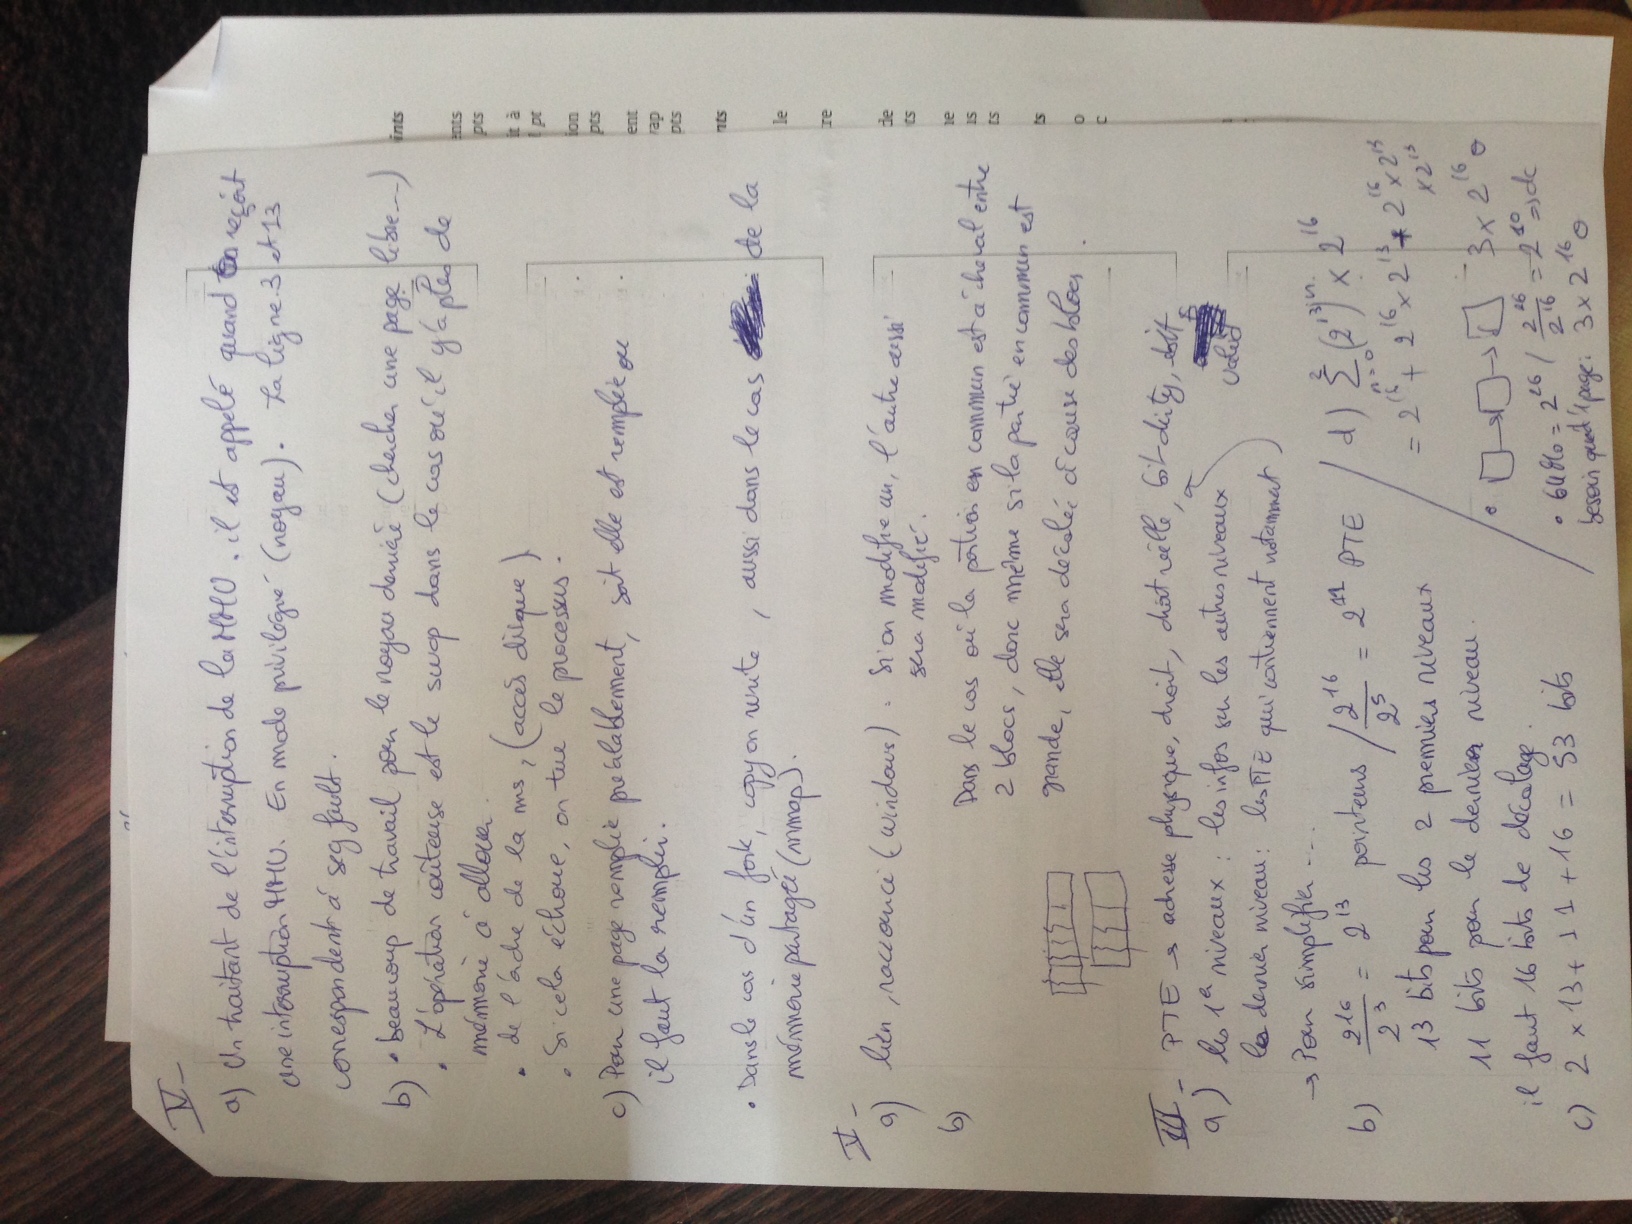 IV-
a) Un traitant de l'interruption de la MMU. il est appelé quand on reçoit
une interruption MMU. En mode privilégié (noyau). La ligne 3 et 13
correspondent à seg fault.
b) • beaucoup de travail pour le noyau derrière (chercher une page libre...)
• L'opération coûteuse est le swap dans le cas où il y'a plus de
mémoire à allouer.
• de l'ordre de la ms, (accès disque)
• Si cela échoue, on tue le processus.
c) Pour une page remplie préalablement, soit elle est remplie ou
il faut la remplir.
• Dans le cas d'un fork, copy on write, aussi dans le cas de la
mémoire partagée (mmap).
V-
a) lien, raccourci (windows). Si on modifie un, l'autre aussi
sera modifié.
b) Dans le cas où la portion en commun est à cheval entre
2 blocs, donc même si la partie en commun est
grande, elle sera décalée à cause des blocs.
III- PTE → adresse physique, droit, droit réelle, bit dirty, bit
valid
a) les 1er niveaux : les infos sur les autres niveaux
le dernier niveau : les PTE qui contiennent notamment
→ Pour simplifier ...
b) 2^16 / 2^3 = 2^13 pointeurs / 2^16 / 2^5 = 2^11 PTE
13 bits pour les 2 premiers niveaux
11 bits pour le dernier niveau.
il faut 16 bits de décalage.
c) 2 x 13 + 11 + 16 = 53 bits
d) Σ n=0 2 (2^13)^n x 2^16
= 2^16 + 2^16 x 2^13 + 2^16 x 2^13
x 2^13
• → → 3 x 2^16 o
• 64Mo = 2^26 / 2^26 / 2^16 = 2^10 ⇒ dc
besoin que d'1 page: 3 x 2^16 o
ints
ents
pts
it à
pt
ion
pts
ent
rap
pts
nts
le
re
de
ts
ne
us
ts
ts
o
c